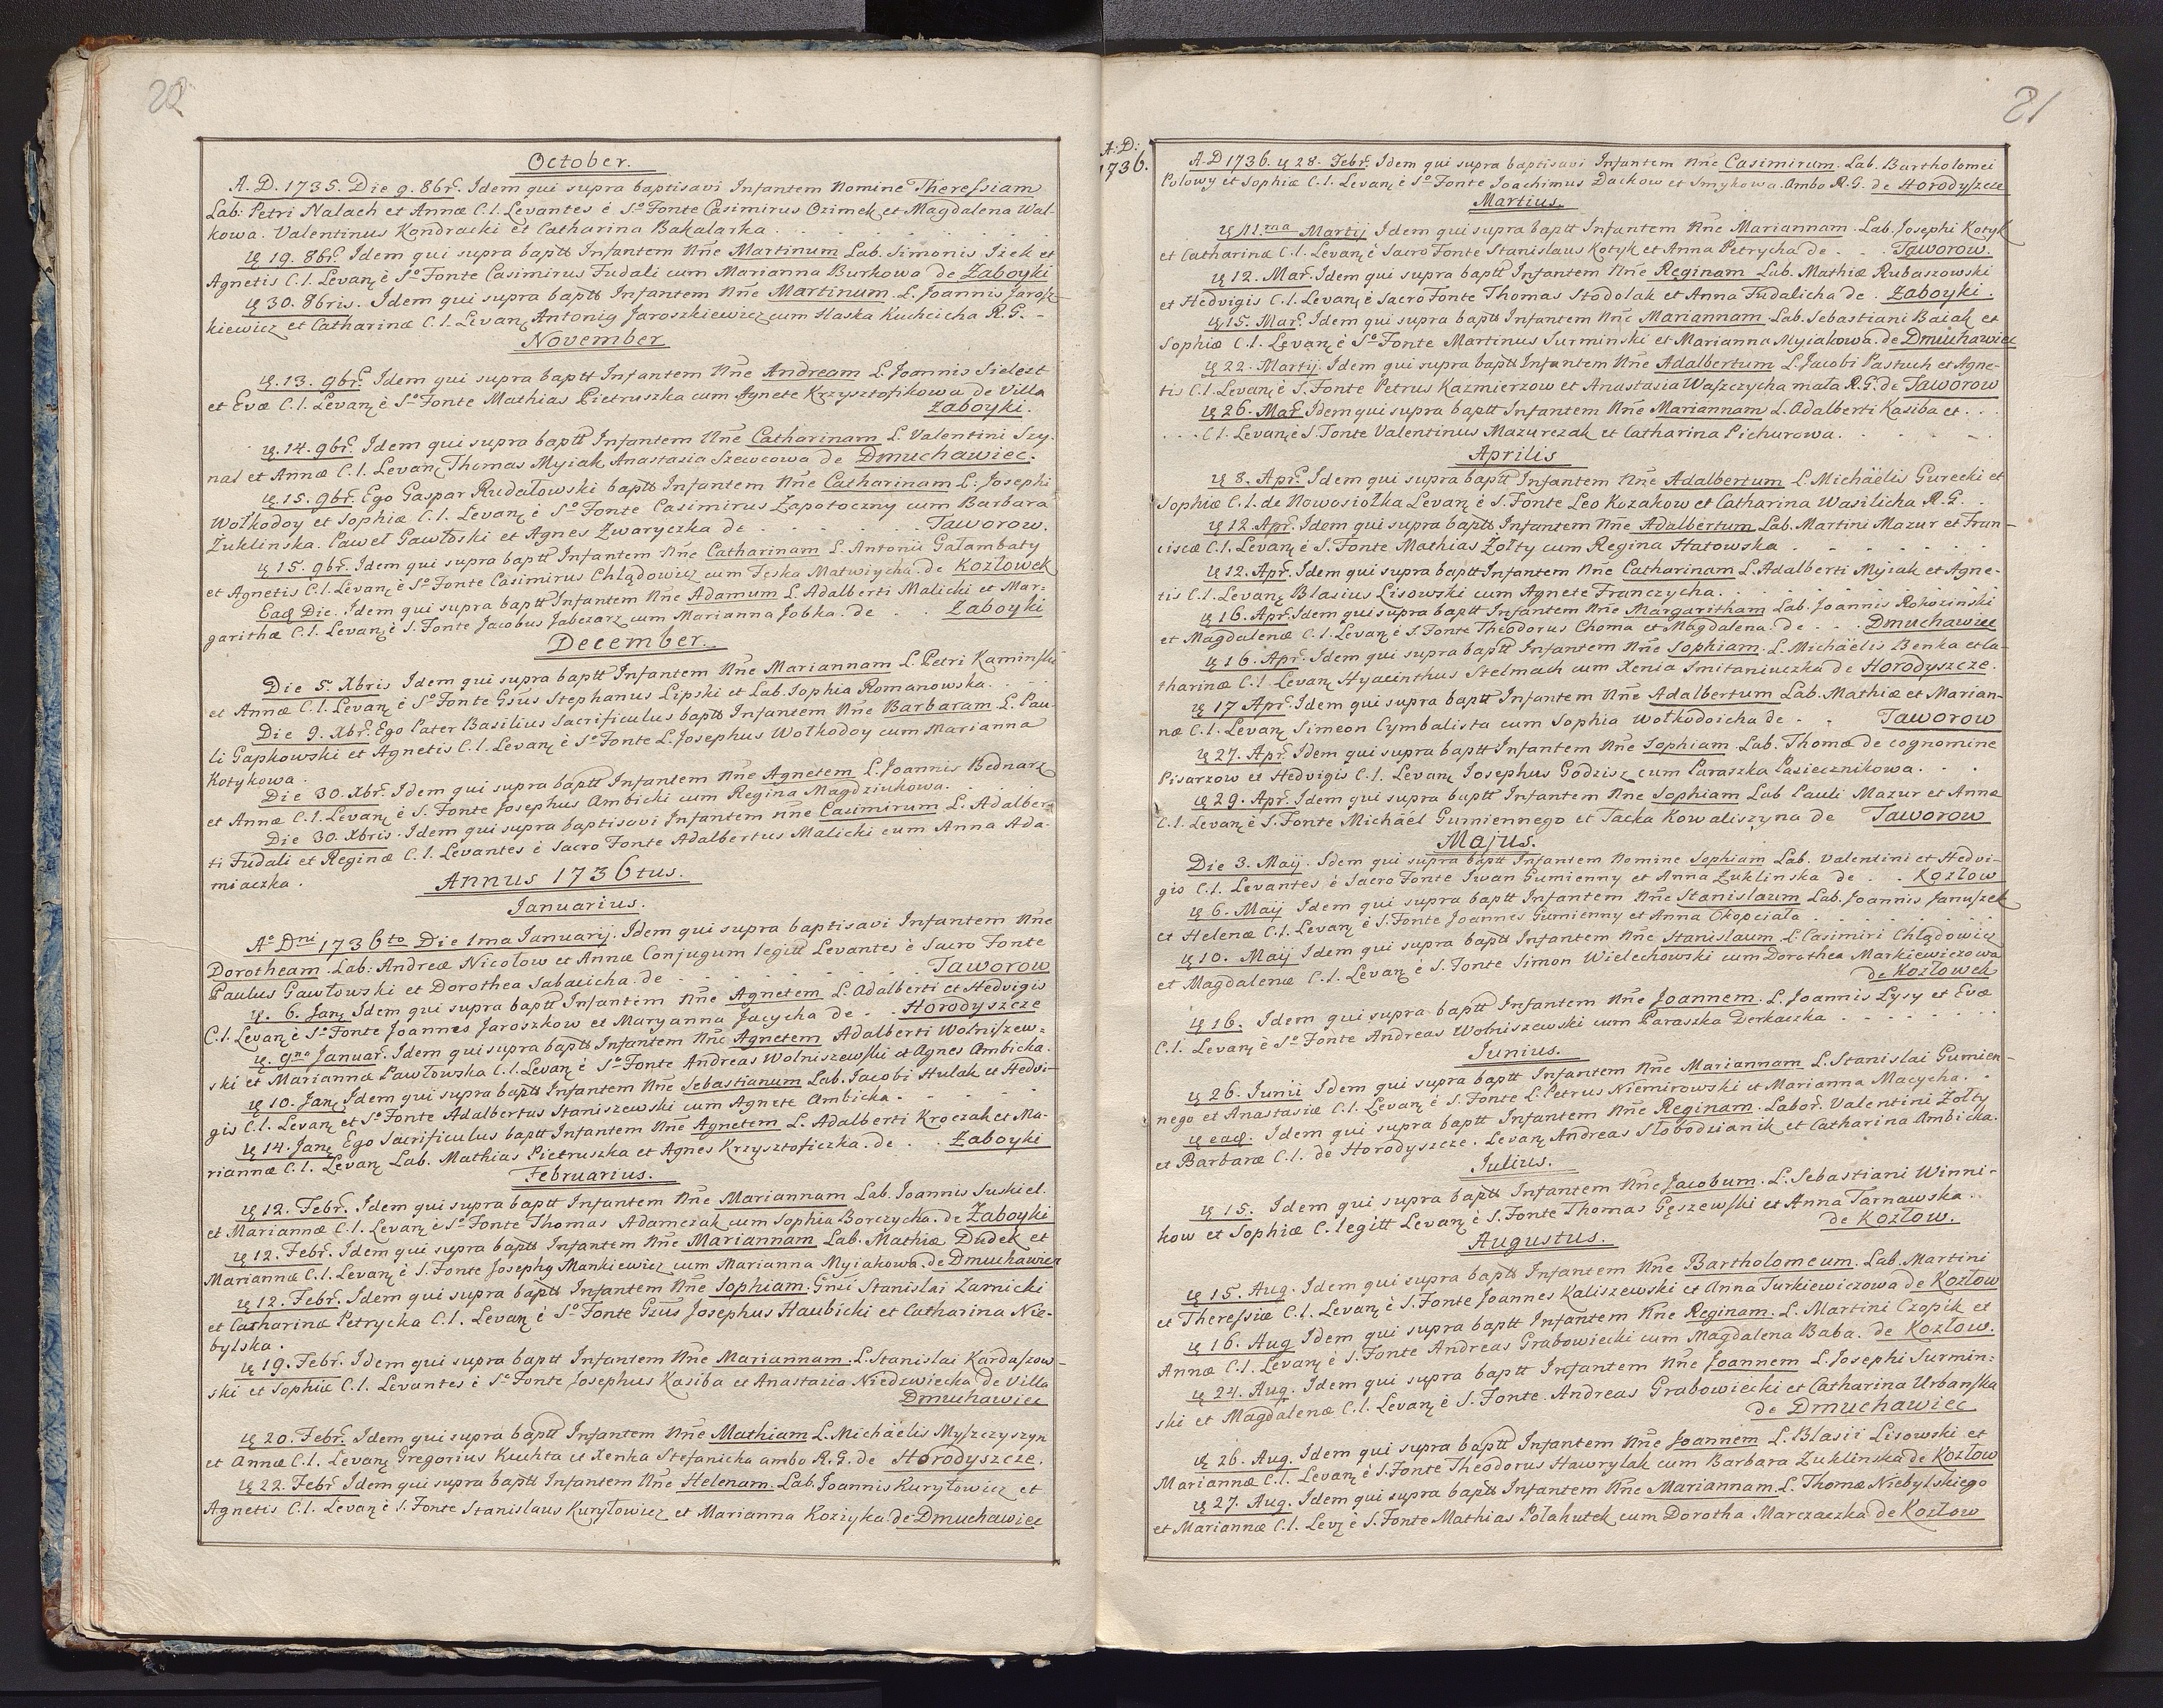 22
October.
A. D. 1735. Die 9. 8br. Idem qui supra baptisavi Infantem Nomine Theressiam
Lab: Petri Nalach et Annæ C.l. Levantes è So Fonte Casimirus Ozimek et Magdalena Wal-
kowa. Valentinus Kondracki et Catharina Bakalarka
19. 8br. Idem qui supra baptt Infantem Nne Martinum Lab. Simonis Izek et
Agnetis C.l. Levan è So Fonte Casimirus Fudali cum Marianna Burkowa de Zaboyki
30. 8bris. Idem qui supra baptt Infantem Nne Martinum. L. Joannis Jarosz-
kiewicz et Catharinæ C.l. Levan Antonig Jaroszkiewicz cum Haska Kuchcicha R.G. -
November
13. 9br. Idem qui supra baptt Infantem Nne Andream L. Joannis Sielezt
et Evæ C.l. Levan è So Fonte Mathias Pietruszka cum Agnete Krzysztofikowa de Villa
Zaboyki.
14. 9br. Idem qui supra baptt Infantem Nne Catharinam L. Valentini Szy.
nal et Annæ C.l. Levan Thomas Myiak Anastazia Szewcowa de Dmuchawiec.
15. 9br. Ego Gaspar Rudałowski baptt Infantem Nne Catharinam L. Josephi
Wołkodoy et Sophiæ C.l. Levan è So Fonte Casimirus Zapotoczny cum Barbara
Żuklinska. Paweł Gawłoski et Agnes Zwaryczka de Taworow.
15. 9br. Idem qui supra baptt Infantem Nne Catharinam L. Antonii Gałambaty
et Agnetis C.l. Levan è So Fonte Casimirus Chlądowicz cum Feska Matwiycha de Kozłowek
Eaq Die. Idem qui supra baptt Infantem Nne Adamum L. Adalberti Malicki et Mar-
garithæ C.l. Levan è S. Fonte Jacobus Jabczarz cum Marianna Jobka. de Zaboyki
December.
Die 5. Xbris Idem qui supra baptt Infantem Nne Mariannam L. Petri Kaminski
et Annæ C.l. Levan è So Fonte Gsus Stephanus Lipski et Lab. Sophia Romanowska.
Die 9. Xbr. Ego Pater Basilius Sacrificulus baptt Infantem Nne Barbaram L. Pau-
li Gapkowski et Agnetis C.l. Levan è So Fonte L. Josephus Wołkodoy cum Marianna
Kotykowa.
Die 30. Xbr. Idem qui supra baptt Infantem Nne Agnetem L. Joannis Bednarz
et Annæ C.l. Levan è S. Fonte Josephus Ambicki cum Regina Magdziukowa.
Die 30. Xbris. Idem qui supra baptisavi Infantem Nne Casimirum L. Adalber
ti Fudali et Reginæ C.l. Levantes è Sacro Fonte Adalbertus Malicki cum Anna Ada-
miaczka.
Annus 1736tus.
Ianuarius.
Ao Dni 1736to Die 1ma Ianuarij. Idem qui supra baptisavi Infantem Nne
Dorotheam Lab: Andreæ Nicołow et Annæ Conjugum legitt Levantes è Sacro Fonte
Paulus Gawłowski et Dorothea Sabacicha de Taworow
6. Jan Idem qui supra baptt Infantem Nne Agnetem L. Adalberti et Hedvigis
C.l. Levan è So Fonte Joannes Jaroszkow et Maryanna Jacycha de Horodyszcze
9no Januar. Idem qui supra baptt Infantem Nne Agnetem Adalberti Wolniszew=
ski et Mariannæ Pawłowska C.l. Levan è So Fonte Andreas Wolniszewski et Agnes Ambicka.
10. Jan Idem qui supra baptt Infantem Nne Sebastianum Lab. Jacobi Hulak et Hedvi-
gis C.l. Levan et So Fonte Adalbertus Staniszewski cum Agnete Ambicka.
14. Jan Ego Sacrificulus baptt Infantem Nne Agnetem L. Adalberti Kroczak et Ma-
riannæ C.l. Levan Lab. Mathias Pietruszka et Agnes Krzysztoficzka. de Zaboyki
Februarius.
12. Febr. Idem qui supra baptt Infantem Nne Mariannam Lab. Joannis Suskiel.
et Mariannæ C.l. Levan è So Fonte Thomas Adamczak cum Sophia Borczycha. de Zaboyki
12. Febr. Idem qui supra baptt Infantem Nne Mariannam Lab. Mathiæ Dudek et
Mariannæ C.l. Levan è S. Fonte Josephg Mankiewicz cum Marianna Myiakowa. de Dmuchawiec
12. Febr. Idem qui supra baptt Infantem Nne Sophiam. Gnsi Stanislai Zarnicki
et Catharinæ Petrycka C.l. Levan è So Fonte Gsus Josephus Haubicki et Catharina Nie-
bylska.
19. Febr. Idem qui supra baptt Infantem Nne Mariannam. L. Stanislai Kardaszow-
ski et Sophiæ C.l. Levantes è So Fonte Josephus Kasiba et Anastazia Niedzwiecka de Villa
Dmuchawiec
20. Febr. Idem qui supra baptt Infantem Nne Mathiam L. Michäelis Myszczyszyn
et Annæ C.l. Levan Gregorius Kuchta et Xenka Stefanicha ambo R.G. de Horodyszcze.
22. Febr Idem qui supra baptt Infantem Nne Helenam. Lab. Joannis Kuryłowicz et
Agnetis C.l. Levan è S. Fonte Stanislaus Kuryłowicz et Marianna Koziyka. de Dmuchawiec
21
A: D:
1736.
A. D 1736. 28. Febr. Idem qui supra baptisavi Infantem Nne Casimirum. Lab. Bartholomei
Polowy et Sophiæ C.l. Levan è So Fonte Joachimus Dackow et Smykowa. Ambo R.G. de Horodyszcze
Martius.
11.ma Martij Idem qui supra baptt Infantem Nne Mariannam. Lab. Josephi Kotyk
et Catharinæ C.l. Levan è Sacro Fonte Stanislaus Kotyk et Anna Petrycha de Taworow.
12. Mar. Idem qui supra baptt Infantem Nne Reginam Lab. Mathiæ Rubaszowski
et Hedvigis C.l. Levan è Sacro Fonte Thomas Stodolak et Anna Fudalicha de Zaboyki.
15. Mar. Idem qui supra baptt Infantem Nne Mariannam Lab. Sebastiani Baiak et
Sophiæ C.l. Levan è So Fonte Martinus Surminski et Marianna Myiakowa. de Dmuchawiec
22. Martij. Idem qui supra baptt Infantem Nne Adalbertum L. Jacobi Pastuch et Agne-
tis C.l. Levan è S. Fonte Petrus Kazmierzow et Anastasia Waszczycha mała R.G. de Taworow
26. Mar Idem qui supra baptt Infantem Nne Mariannam L. Adalberti Kasiba et . .
. . . C.l. Levan è S. Fonte Valentinus Mazurczak et Catharina Pichurowa.
Aprilis
8. Apr. Idem qui supra baptt Infantem Nne Adalbertum L. Michäelis Gurecki et
Sophiæ C.l. de Nowosiołka Levan è S. Fonte Leo Kozakow et Catharina Wasilicha R.G.
12. Apr. Idem qui supra baptt Infantem Nne Adalbertum Lab. Martini Mazur et Fran-
ciscæ C.l. Levan è S. Fonte Mathias Żołty cum Regina Hatowska
12. Apr. Idem qui supra baptt Infantem Nne Catharinam L. Adalberti Myiak et Agne-
tis C.l. Levan Blasius Lisowski cum Agnete Franczycha.
16. Apr. Idem qui supra baptt Infantem Nne Margaritham Lab. Joannis Rokozinski
et Magdalenæ C.l. Levan è S. Fonte Theodorus Choma et Magdalena. de Dmuchawiec
16. Apr. Idem qui supra baptt Infantem Nne Sophiam. L. Michäelis Benka et Ca-
tharinæ C.l. Levan Hyacinthus Stelmach cum Xenia Smitaniuczka de Horodyszcze.
17 Apr. Idem qui supra baptt Infantem Nne Adalbertum Lab. Mathiæ et Marian-
næ C.l. Levan Simeon Cymbalista cum Sophia Wołkodoicha de Taworow
27. Apr. Idem qui supra baptt Infantem Nne Sophiam Lab. Thomæ de cognomine
Pisarzow et Hedvigis C.l. Levan Josephus Godzisz cum Paraszka Pasiecznikowa.
29. Apr. Idem qui supra baptt Infantem Nne Sophiam Lab Pauli Mazur et Annæ
C.l. Levan è S. Fonte Michäel Gumiennego et Tacka Kowaliszyna de Taworow
Majus.
Die 3. Maij. Idem qui supra baptt Infantem Nomine Sophiam Lab. Valentini et Hedvi-
gis C.l. Levantes è Sacro Fonte Iwan Gumienny et Anna Zuklinska de Kozłow
6. Maij Idem qui supra baptt Infantem Nne Stanislaum Lab. Joannis Januszek
et Helenæ C.l. Levan è S. Fonte Joannes Gumienny et Anna Okopciała
10. Maij Idem qui supra baptt Infantem Nne Stanislaum L. Casimiri Chlądowicz
et Magdalenæ C.l. Levan è S. Fonte Simon Wielechowski cum Dorothea Markiewiczowa
de Kozłowek
16. Idem qui supra baptt Infantem Nne Joannem. L. Joannis Łysy et Evæ
C.l. Levan è So Fonte Andreas Wolniszewski cum Paraszka Derkaczka
Iunius.
26. Iunii Idem qui supra baptt Infantem Nne Mariannam L. Stanislai Gumien-
nego et Anastasiæ C.l. Levan è S. Fonte L. Petrus Niemirowski et Marianna Macycha.
eaq. Idem qui supra baptt Infantem Nne Reginam. Labor. Valentini Żołty
et Barbaræ C.l. de Horodyszcze. Levan Andreas Słobodzianik et Catharina Ambicka.
Iulius.
15. Idem qui supra baptt Infantem Nne Jacobum. L. Sebastiani Winni-
kow et Sophiæ C. legitt Levan è S. Fonte Thomas Gęszewski et Anna Tarnawska.
de Kozłow.
Augustus.
15. Aug. Idem qui supra baptt Infantem Nne Bartholomeum. Lab. Martini
et Theressiæ C.l. Levan è S. Fonte Joannes Kaliszewski et Anna Turkiewiczowa de Kozłow
16. Aug Idem qui supra baptt Infantem Nne Reginam. L. Martini Czopik et
Annæ C.l. Levan è S. Fonte Andreas Grabowiecki cum Magdalena Baba. de Kozłow.
24. Aug. Idem qui supra baptt Infantem Nne Joannem L. Josephi Surmin=
ski et Magdalenæ C.l. Levan è S. Fonte. Andreas Grabowiecki et Catharina Urbanska
de Dmuchawiec
26. Aug. Idem qui supra baptt Infantem Nne Joannem L. Blasii Lisowski et
Mariannæ C.l. Levan è S. Fonte Theodorus Hawrylak cum Barbara Zuklinska de Kozłow
27. Aug. Idem qui supra baptt Infantem Nne Mariannam. L. Thomæ Niebylskiego
et Mariannæ C.l. Lev è S. Fonte Mathias Połahutek cum Dorotha Marczaczka de Kozłow